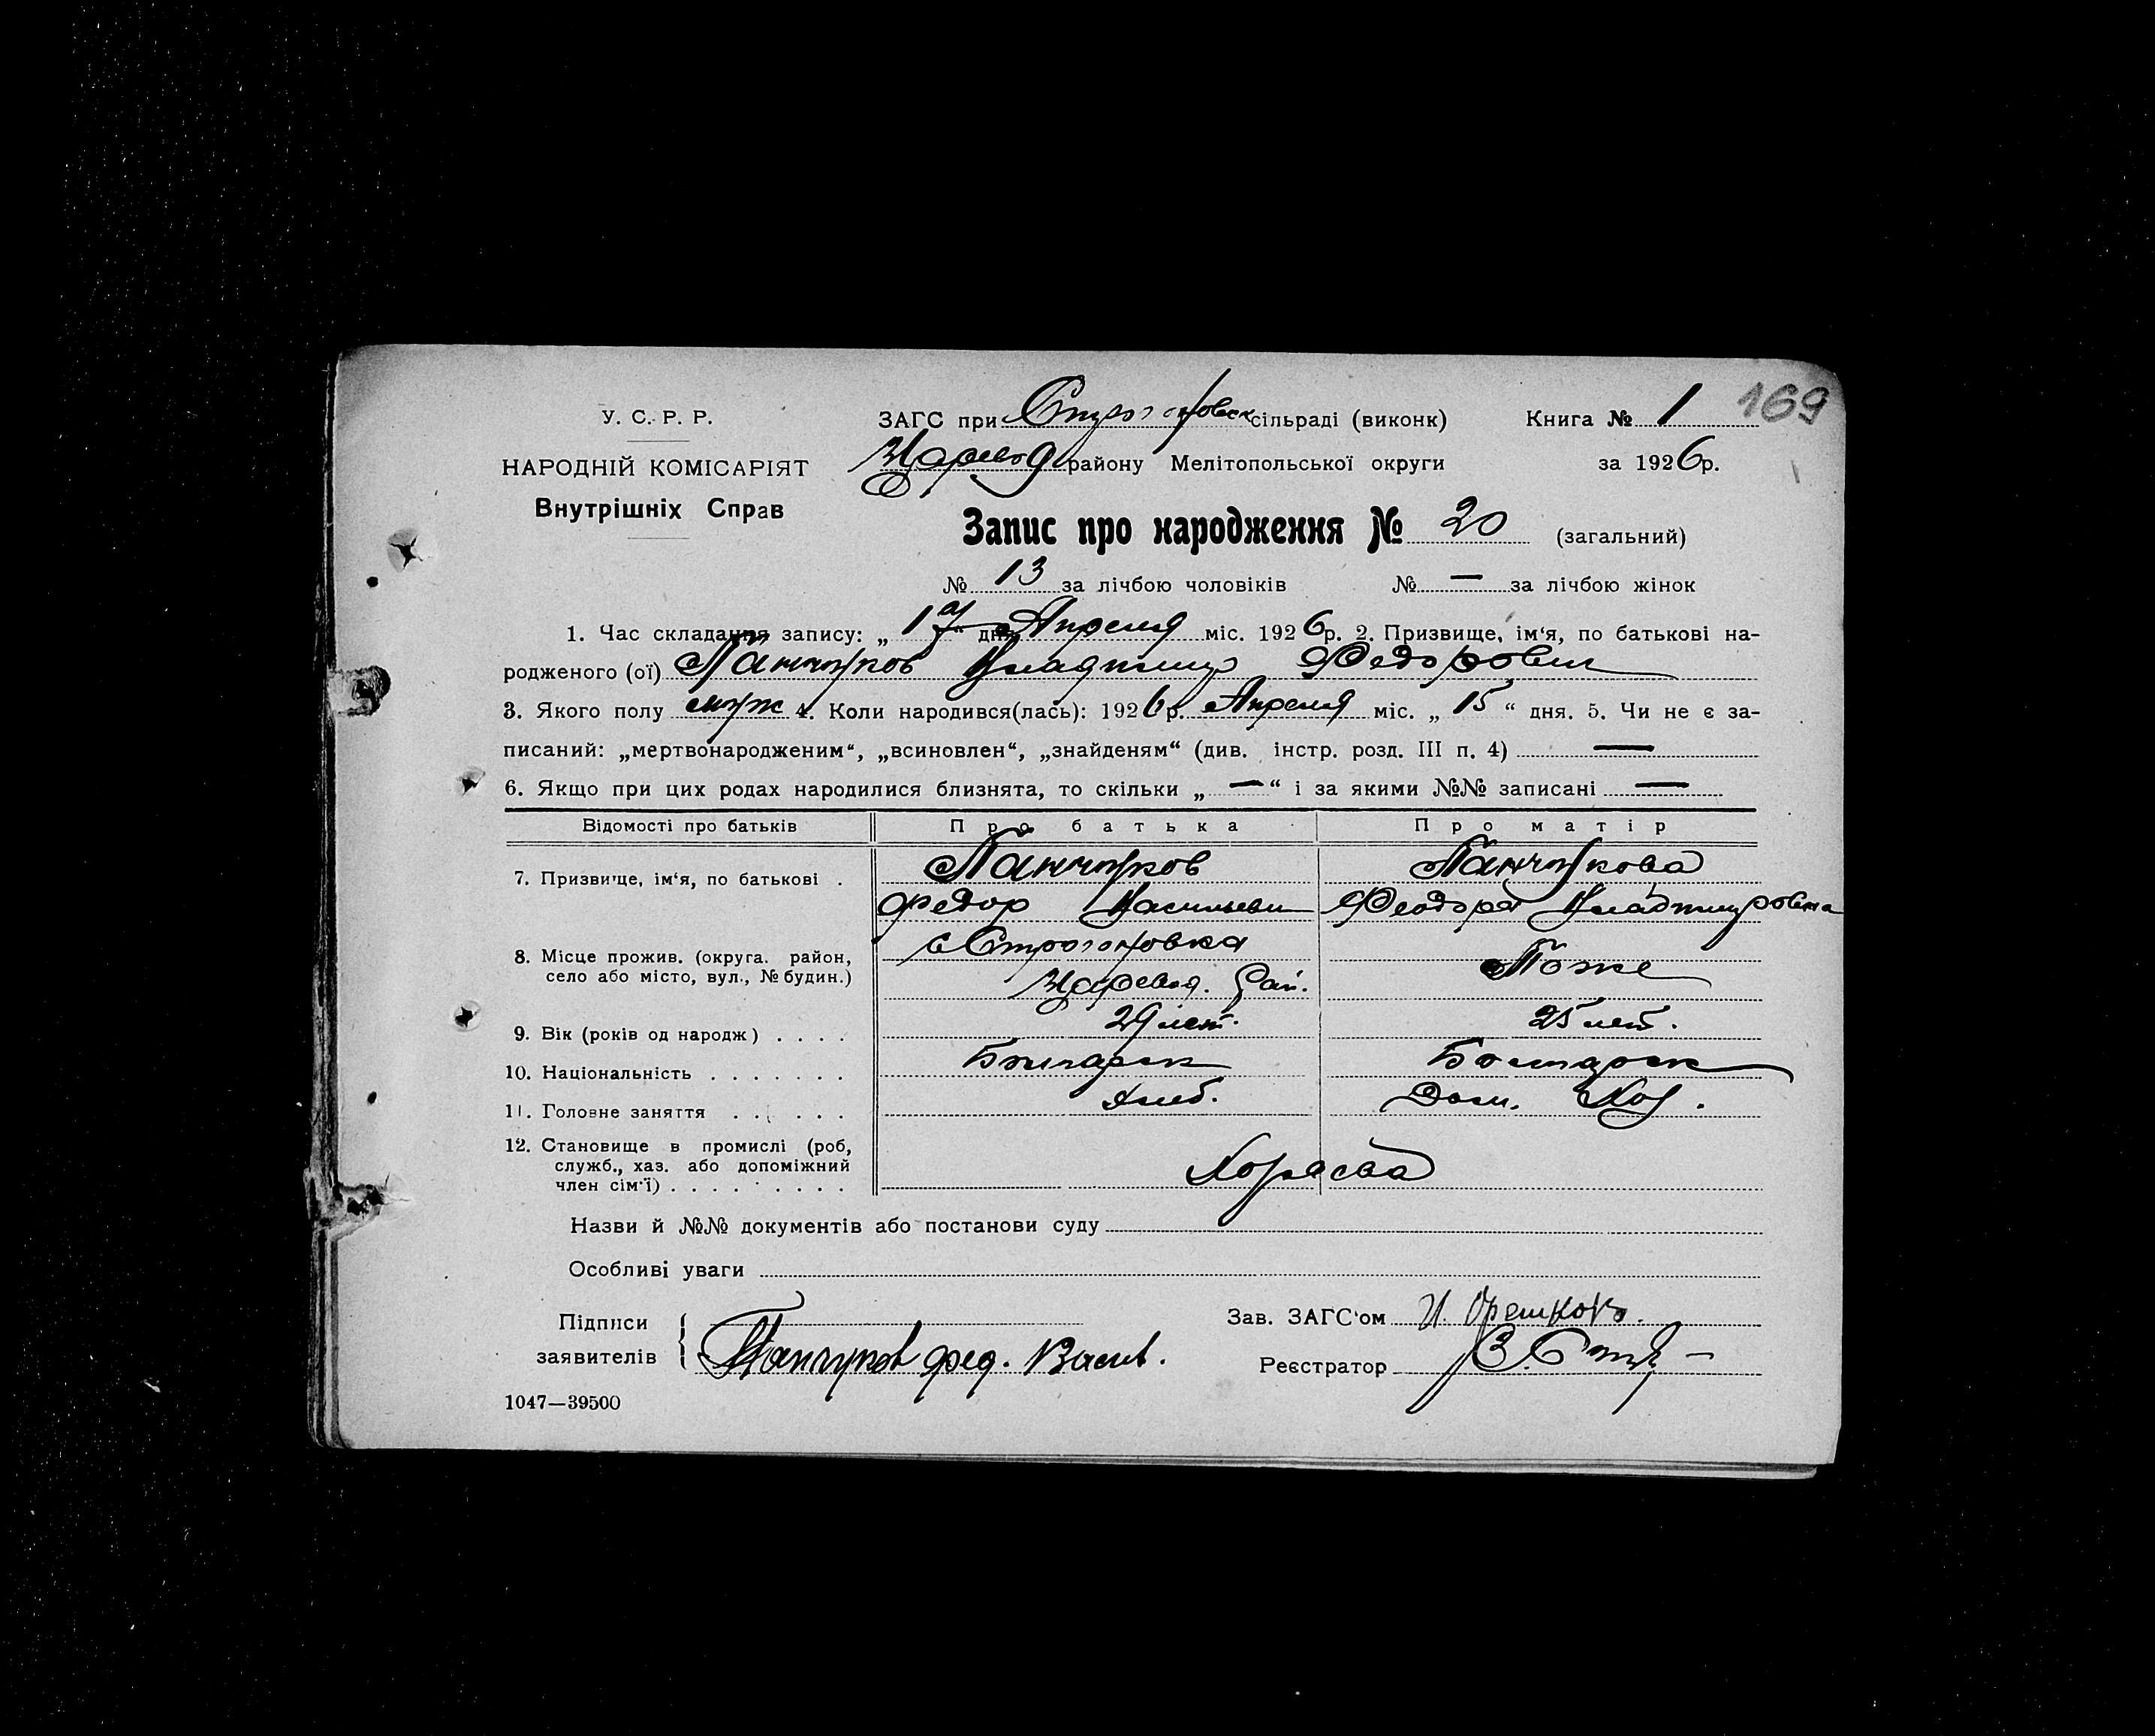 У. С. Р. Р.
НАРОДНІЙ КОМІСАРІЯТ
Внутрішніх Справ
ЗАГС при Строгоновск сільраді (виконк) Книга № 1 169
Царевод району Мелітопольської округи за 1926 р.
Запис про народження № 20 (загальний)
№ 13 за лічбою чоловіків № — за лічбою жінок
1. Час складання запису: „ “ дня Апреля міс. 1926 р. 2. Призвище, ім‘я, по батькові на-
родженого (ої) Панчуков Владимир Федорович
3. Якого полу муж 4. Коли народився(лась): 1926 р. Апреля міс. „ 15 “ дня. 5. Чи не є за-
писаний: „мертвонародженим“, „всиновлен“, „знайденям“ (див. інстр. розд. III п. 4) —
6. Якщо при цих родах народилися близнята, то скільки „ — “ і за якими №№ записані —
Відомості про батьків Про батька Про матір
7. Призвище, ім‘я, по батькові . Панчуков Панчукова
Федор Васильеви Феодора Владимировна
8. Місце прожив. (округа. район, село або місто, вул., № будин.) с Строгоновка Тоже
Царевод. Рай.
9. Вік (років од народж) . . . . 29 лет. 25 лет.
10. Національність . . . . . . . Болгарск Болгарск
11. Головне заняття . . . . . . Хлеб. Дом. Хоз.
12. Становище в промислі (роб, служб., хаз. або допоміжний член сім‘ї) . . . . . . . . .
Назви й №№ документів або постанови суду
Особливі уваги
Підписи заявителів { Панчуков Фед. Васил.
Зав. ЗАГС‘ом И. Орешков.
Реєстратор
1047—39500